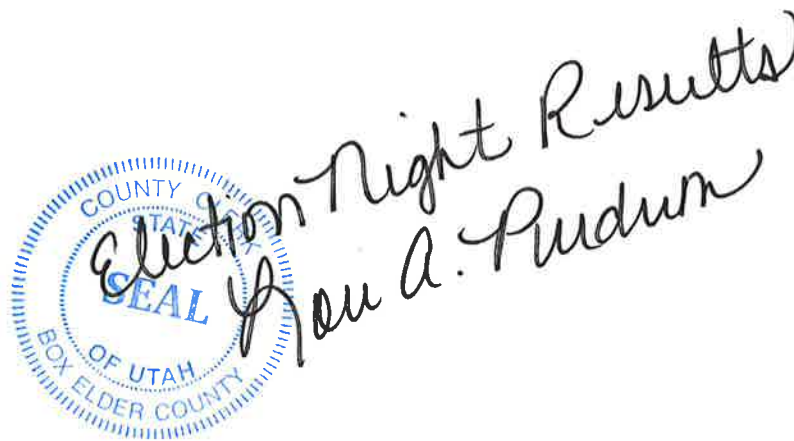 Election Night Results
Lou A. Purdum
COUNTY
STATE
SEAL
OF UTAH
BOX ELDER COUNTY